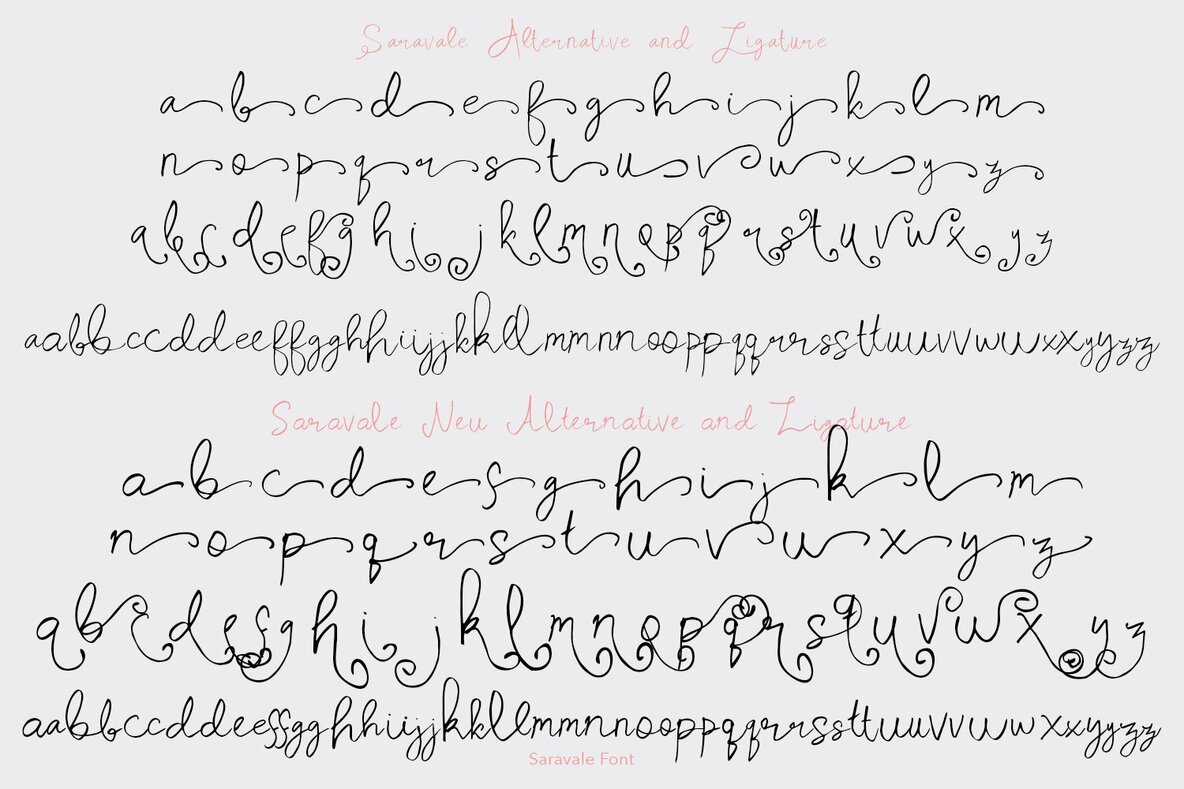 Saravale Alternative and Ligature
a b c d e f g h i j k l m
n o p q r s t u v w x y z
a b c d e f g h i j k l m n o p q r s t u v w x y z
aabbccddeeffgghhiijjkkllmmnnooppqqrrssttuuvvwwxxyyzz
Saravale Neu Alternative and Ligature
a b c d e f g h i j k l m
n o p q r s t u v w x y z
a b c d e f g h i j k l m n o p q r s t u v w x y z
aabbccddeeffgghhiijjkkllmmnnooppqqrrssttuuvvwwxxyyzz
Saravale Font